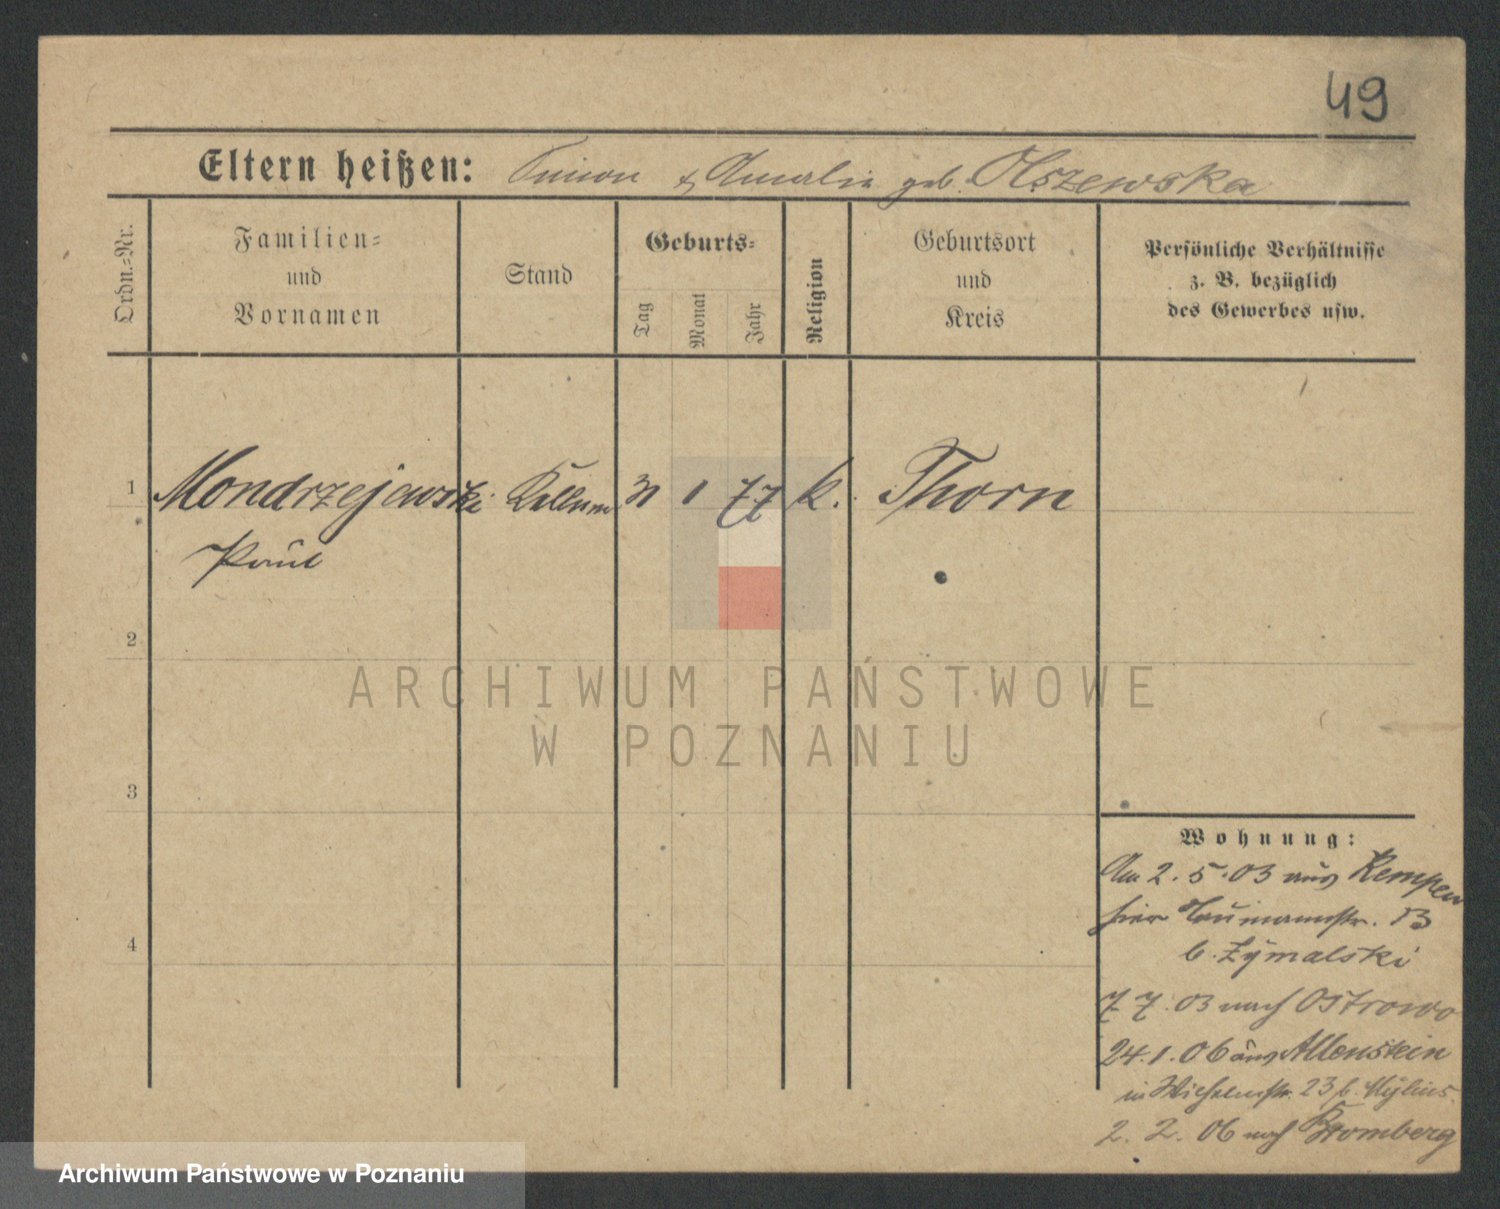 49
Eltern heißen: Simon & Amalia geb. Olszewska
Ordn.-Nr.
Familien-
und
Vornamen
Stand
Geburts-
Tag
Monat
Jahr
Religion
Geburtsort
und
Kreis
Persönliche Verhältnisse
z. B. bezüglich
des Gewerbes usw.
1 Mondrzejewski Kellner 31 1 77 k. Thorn
Paul
2
ARCHIWUM PAŃSTWOWE
W POZNANIU
3
4
Wohnung:
Am 2. 5. 03 aus Kempen
hier Naumannstr. 13
b. Zymalski
7. 7. 03 nach Ostrowo
24. 1. 06 aus Allenstein
in Wilhelmstr. 23 b. Mylius
2. 2. 06 nach Bromberg
Archiwum Państwowe w Poznaniu